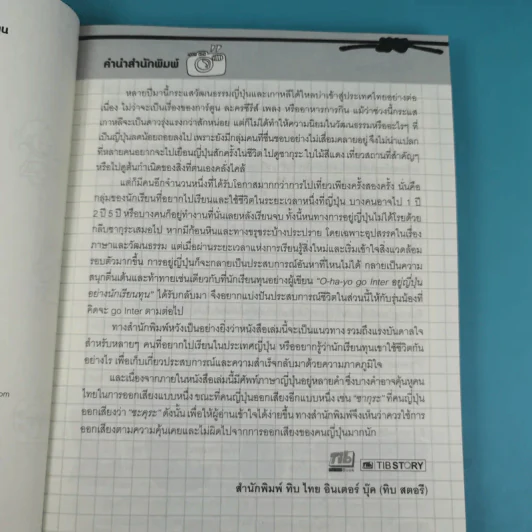 คำนำสำนักพิมพ์
หลายปีมานี้กระแสวัฒนธรรมญี่ปุ่นและเกาหลีได้ไหลบ่าเข้าสู่ประเทศไทยอย่างต่อ
เนื่อง ไม่ว่าจะเป็นเรื่องของการ์ตูน ละครซีรีส์ เพลง หรืออาหารการกิน แม้ว่าช่วงนี้กระแส
เกาหลีจะเป็นดาวรุ่งแรงกว่าสักหน่อย แต่ก็ไม่ได้ทำให้ความนิยมในวัฒนธรรมหรืออะไรๆ ที่
เป็นญี่ปุ่นลดน้อยถอยลงไป เพราะยังมีกลุ่มคนที่ชื่นชอบอย่างไม่เสื่อมคลายอยู่ จึงไม่น่าแปลก
ที่หลายคนอยากจะไปเยือนญี่ปุ่นสักครั้งในชีวิต ไปดูซากุระ ใบไม้สีแดง เที่ยวสถานที่สำคัญๆ
หรือไปดูต้นกำเนิดของสิ่งที่ตนเองคลั่งไคล้
แต่ก็มีคนอีกจำนวนหนึ่งที่ได้รับโอกาสมากกว่าการไปเที่ยวเพียงครั้งสองครั้ง นั่นคือ
กลุ่มของนักเรียนที่อยากไปเรียนและใช้ชีวิตในระยะเวลาหนึ่งที่ญี่ปุ่น บางคนอาจไป 1 ปี
2 ปี 5 ปี หรือบางคนก็อยู่ทำงานที่นั่นเลยหลังเรียนจบ ทั้งนี้หนทางการอยู่ญี่ปุ่นไม่ได้โรยด้วย
กลีบซากุระเสมอไป หากมีก้อนหินและทางขรุขระบ้างประปราย โดยเฉพาะอุปสรรคในเรื่อง
ภาษาและวัฒนธรรม แต่เมื่อผ่านระยะเวลาแห่งการเรียนรู้สิ่งใหม่และเริ่มเข้าใจสิ่งแวดล้อม
รอบตัวมากขึ้น การอยู่ญี่ปุ่นก็จะกลายเป็นประสบการณ์อันหาที่ไหนไม่ได้ กลายเป็นความ
สนุกตื่นเต้นและท้าทายเช่นเดียวกับที่นักเรียนทุนอย่างผู้เขียน "O-ha-yo go Inter อยู่ญี่ปุ่น
อย่างนักเรียนทุน" ได้รับกลับมา จึงอยากแบ่งปันประสบการณ์ชีวิตในส่วนนี้ให้กับรุ่นน้องที่
คิดจะ go Inter ตามต่อไป
ทางสำนักพิมพ์หวังเป็นอย่างยิ่งว่าหนังสือเล่มนี้จะเป็นแนวทาง รวมถึงแรงบันดาลใจ
สำหรับหลายๆ คนที่อยากไปเรียนในประเทศญี่ปุ่น หรืออยากรู้ว่านักเรียนทุนเขาใช้ชีวิตกัน
อย่างไร เพื่อเก็บเกี่ยวประสบการณ์และความสำเร็จกลับมาด้วยความภาคภูมิใจ
และเนื่องจากภายในหนังสือเล่มนี้มีศัพท์ภาษาญี่ปุ่นอยู่หลายคำซึ่งบางคำอาจคุ้นหูคน
ไทยในการออกเสียงแบบหนึ่ง ขณะที่คนญี่ปุ่นออกเสียงอีกแบบหนึ่ง เช่น "ซากุระ" ที่คนญี่ปุ่น
ออกเสียงว่า "ซะคุระ" ดังนั้น เพื่อให้ผู้อ่านเข้าใจได้ง่ายขึ้น ทางสำนักพิมพ์จึงเห็นว่าควรใช้การ
ออกเสียงตามความคุ้นเคยและไม่ผิดไปจากการออกเสียงของคนญี่ปุ่นมากนัก
Tib TIB STORY
สำนักพิมพ์ ทิบ ไทย อินเตอร์ บุ๊ค (ทิบ สตอรี)
om